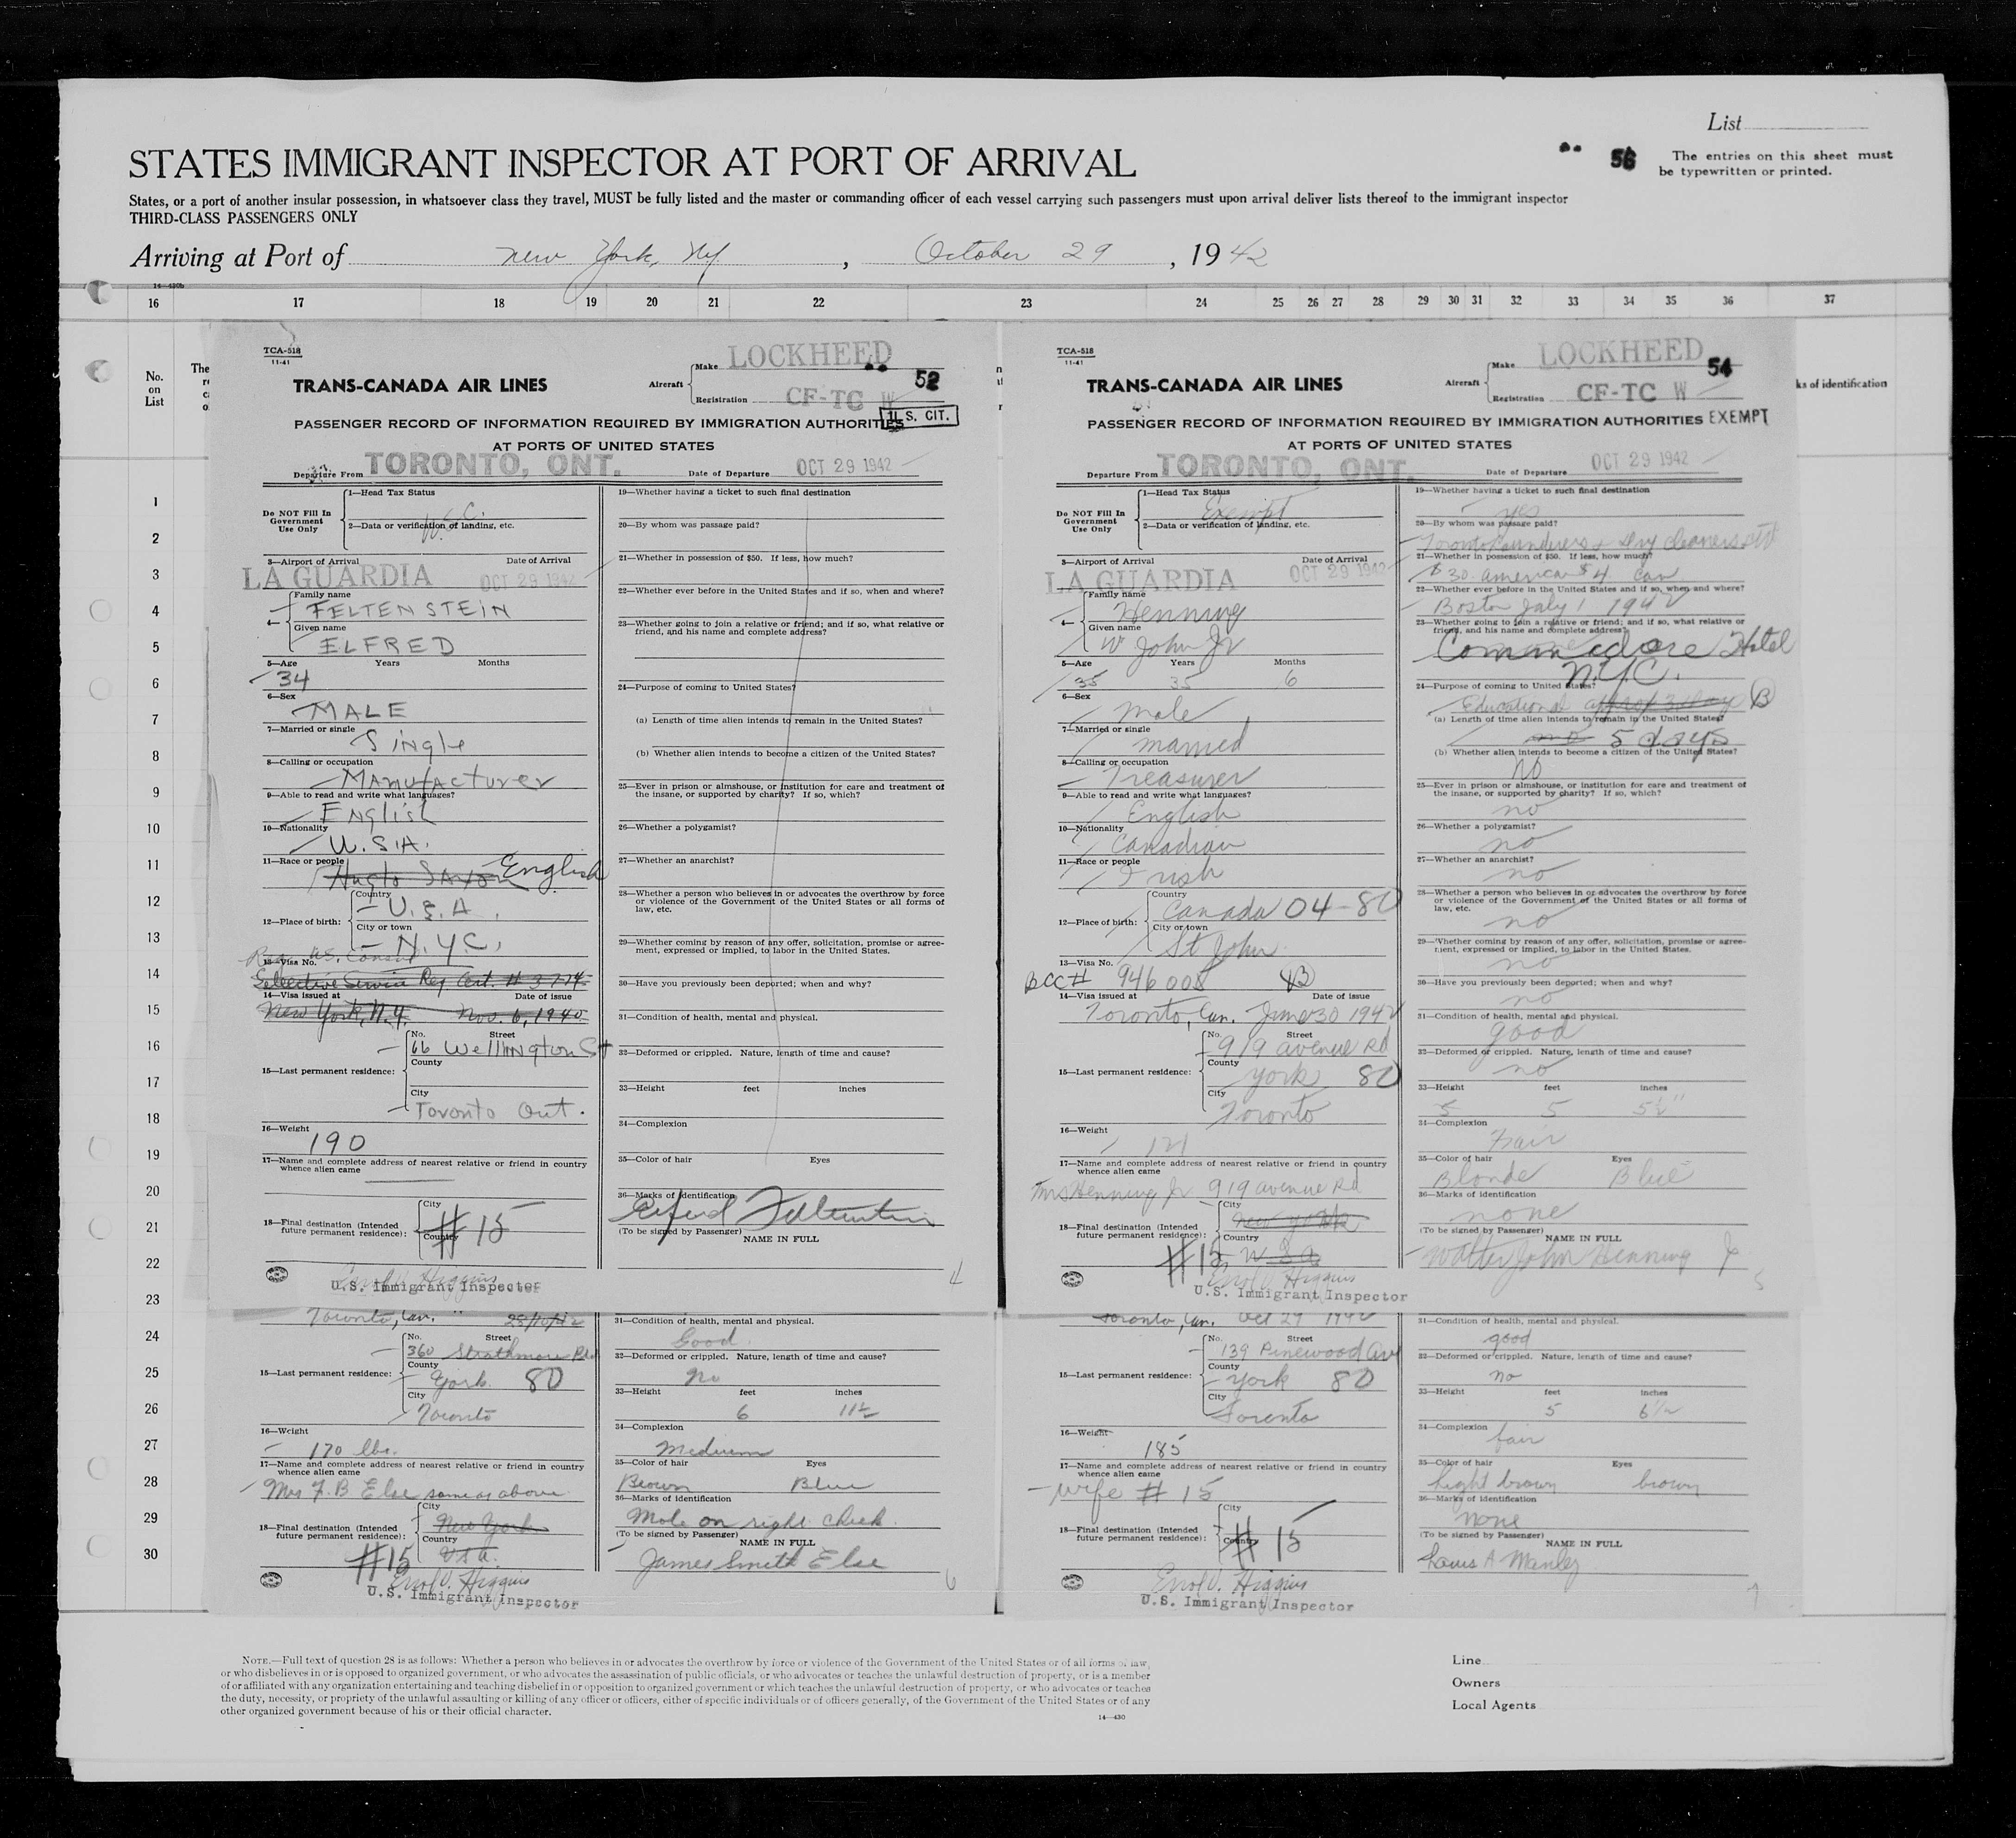 List
STATES IMMIGRANT INSPECTOR AT PORT OF ARRIVAL
56
The entries on this sheet must
be typewritten or printed.
States, or a port of another insular possession, in whatsoever class they travel, MUST be fully listed and the master or commanding officer of each vessel carrying such passengers must upon arrival deliver lists thereof to the immigrant inspector
THIRD-CLASS PASSENGERS ONLY
Arriving at Port of New York, NY, October 29, 1942
14—430b
16 17 18 19 20 21 22 23 24 25 26 27 28 29 30 31 32 33 34 35 36 37
No.
on
List
The
ks of identification
1
2
3
4
5
6
7
8
9
10
11
12
13
14
15
16
17
18
19
20
21
22
23
24
25
26
27
28
29
30
TCA-518
11-41
TRANS-CANADA AIR LINES
Aircraft
Make LOCKHEED
52
Registration CF-TC W
U.S. CIT.
PASSENGER RECORD OF INFORMATION REQUIRED BY IMMIGRATION AUTHORITIES
AT PORTS OF UNITED STATES
Departure From TORONTO, ONT.
Date of Departure OCT 29 1942
Do NOT Fill In
Government
Use Only
1—Head Tax Status
2—Data or verification of landing, etc.
3—Airport of Arrival Date of Arrival
LA GUARDIA OCT 29 1942
4—
Family name
FELTENSTEIN
Given name
ELFRED
5—Age Years Months
34
6—Sex
MALE
7—Married or single
Single
8—Calling or occupation
Manufacturer
9—Able to read and write what languages?
English
10—Nationality
U.S.A.
11—Race or people
English
12—Place of birth:
Country
U.S.A.
City or town
N.Y.C.
13—Visa No.
Selective Service Reg Cert. # 3774
14—Visa issued at Date of issue
New York, N.Y. Nov. 6, 1940
15—Last permanent residence:
No. Street
66 Wellington St
County
City
Toronto Ont.
16—Weight
190
17—Name and complete address of nearest relative or friend in country
whence alien came
18—Final destination (Intended
future permanent residence):
City
Country
#15
U.S. Immigrant Inspector
19—Whether having a ticket to such final destination
20—By whom was passage paid?
21—Whether in possession of $50. If less, how much?
22—Whether ever before in the United States and if so, when and where?
23—Whether going to join a relative or friend; and if so, what relative or
friend, and his name and complete address?
24—Purpose of coming to United States?
(a) Length of time alien intends to remain in the United States?
(b) Whether alien intends to become a citizen of the United States?
25—Ever in prison or almshouse, or institution for care and treatment of
the insane, or supported by charity? If so, which?
26—Whether a polygamist?
27—Whether an anarchist?
28—Whether a person who believes in or advocates the overthrow by force
or violence of the Government of the United States or all forms of
law, etc.
29—Whether coming by reason of any offer, solicitation, promise or agree-
ment, expressed or implied, to labor in the United States.
30—Have you previously been deported; when and why?
31—Condition of health, mental and physical.
32—Deformed or crippled. Nature, length of time and cause?
33—Height feet inches
34—Complexion
35—Color of hair Eyes
36—Marks of identification
Elfred Feltenstein
(To be signed by Passenger)
NAME IN FULL
4
TCA-518
11-41
TRANS-CANADA AIR LINES
Aircraft
Make LOCKHEED
54
Registration CF-TC W
PASSENGER RECORD OF INFORMATION REQUIRED BY IMMIGRATION AUTHORITIES EXEMPT
AT PORTS OF UNITED STATES
Departure From TORONTO, ONT.
Date of Departure OCT 29 1942
Do NOT Fill In
Government
Use Only
1—Head Tax Status
Exempt
2—Data or verification of landing, etc.
3—Airport of Arrival Date of Arrival
LA GUARDIA OCT 29 1942
4—
Family name
Henning
Given name
W John Jr
5—Age Years Months
35 35 6
6—Sex
male
7—Married or single
married
8—Calling or occupation
Treasurer
9—Able to read and write what languages?
English
10—Nationality
Canadian
11—Race or people
Irish
12—Place of birth:
Country
Canada 04-80
City or town
St John
13—Visa No.
BCC# 946008
14—Visa issued at Date of issue
Toronto, Can. June 30 1942
15—Last permanent residence:
No. Street
919 avenue Rd
County
york 80
City
Toronto
16—Weight
121
17—Name and complete address of nearest relative or friend in country
whence alien came
Mrs Henning Jr 919 avenue Rd
18—Final destination (Intended
future permanent residence):
City
new york
Country
#15 U S a
Errol V. Higgins
U.S. Immigrant Inspector
19—Whether having a ticket to such final destination
yes
20—By whom was passage paid?
Toronto Launderers & Dry Cleaners
21—Whether in possession of $50. If less, how much?
$30 american $4 can
22—Whether ever before in the United States and if so, when and where?
Boston July 1 1942
23—Whether going to join a relative or friend; and if so, what relative or
friend, and his name and complete address?
Commodore Hotel
N.Y.C.
24—Purpose of coming to United States?
Educational B
(a) Length of time alien intends to remain in the United States?
5 days
(b) Whether alien intends to become a citizen of the United States?
No
25—Ever in prison or almshouse, or institution for care and treatment of
the insane, or supported by charity? If so, which?
no
26—Whether a polygamist?
no
27—Whether an anarchist?
no
28—Whether a person who believes in or advocates the overthrow by force
or violence of the Government of the United States or all forms of
law, etc.
no
29—Whether coming by reason of any offer, solicitation, promise or agree-
ment, expressed or implied, to labor in the United States.
no
30—Have you previously been deported; when and why?
no
31—Condition of health, mental and physical.
good
32—Deformed or crippled. Nature, length of time and cause?
no
33—Height feet inches
5 5 5½"
34—Complexion
Fair
35—Color of hair Eyes
Blonde Blue
36—Marks of identification
none
(To be signed by Passenger)
NAME IN FULL
Walter John Henning Jr
5
Toronto, Can. 28/10/42
15—Last permanent residence:
No. Street
360 Strathmore Blvd
County
York 80
City
Toronto
16—Weight
170 lbs.
17—Name and complete address of nearest relative or friend in country
whence alien came
Mrs F. B Else same as above
18—Final destination (Intended
future permanent residence):
City
New York
Country
#15 USA.
Errol V. Higgins
U.S. Immigrant Inspector
31—Condition of health, mental and physical.
Good
32—Deformed or crippled. Nature, length of time and cause?
no
33—Height feet inches
6 11½
34—Complexion
Medium
35—Color of hair Eyes
Brown Blue
36—Marks of identification
Mole on right cheek
(To be signed by Passenger)
NAME IN FULL
James Smith Else
6
Toronto, Can. Oct 29 1942
15—Last permanent residence:
No. Street
139 Pinewood Ave
County
York 80
City
Toronto
16—Weight
185
17—Name and complete address of nearest relative or friend in country
whence alien came
wife # 15
18—Final destination (Intended
future permanent residence):
City
Country
# 15
Errol V. Higgins
U.S. Immigrant Inspector
31—Condition of health, mental and physical.
good
32—Deformed or crippled. Nature, length of time and cause?
no
33—Height feet inches
5 6½
34—Complexion
fair
35—Color of hair Eyes
light brown brown
36—Marks of identification
none
(To be signed by Passenger)
NAME IN FULL
Louis A Manley
7
NOTE.—Full text of question 28 is as follows: Whether a person who believes in or advocates the overthrow by force or violence of the Government of the United States or of all forms of law,
or who disbelieves in or is opposed to organized government, or who advocates the assassination of public officials, or who advocates or teaches the unlawful destruction of property, or is a member
of or affiliated with any organization entertaining and teaching disbelief in or opposition to organized government or which teaches the unlawful destruction of property, or who advocates or teaches
the duty, necessity, or propriety of the unlawful assaulting or killing of any officer or officers, either of specific individuals or of officers generally, of the Government of the United States or of any
other organized government because of his or their official character.
14—430
Line
Owners
Local Agents